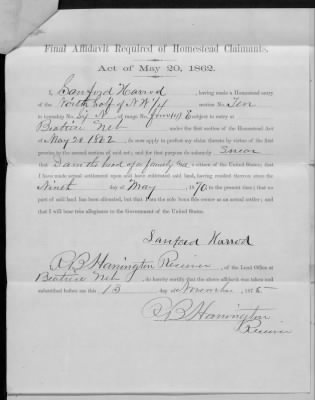 Final Affidavit Required of Homestead Claimants.
Act of May 20, 1862.
I, Sanford Harrod, having made a Homestead entry
of the North half of N W 1/4 section No. Ten
in township No. Six N of range No. Four (4) E subject to entry at
Beatrice Neb under the first section of the Homestead Act
of May 20 1862, do now apply to perfect my claim thereto by virtue of the first
proviso to the second section of said act; and for that purpose do solemnly Swear
that I am the head of a family and a citizen of the United States; that I
have made actual settlement upon and have cultivated said land, having resided thereon since the
Ninth day of May 1870, to the present time; that no
part of said land has been alienated, but that I am the sole bona fide owner as an actual settler; and
that I will bear true allegiance to the Government of the United States.
Sanford Harrod
I, R B Harrington Receiver, of the Land Office at
Beatrice Neb, do hereby certify that the above affidavit was taken and
subscribed before me this 13 day of November 1875
R B Harrington
Receiver